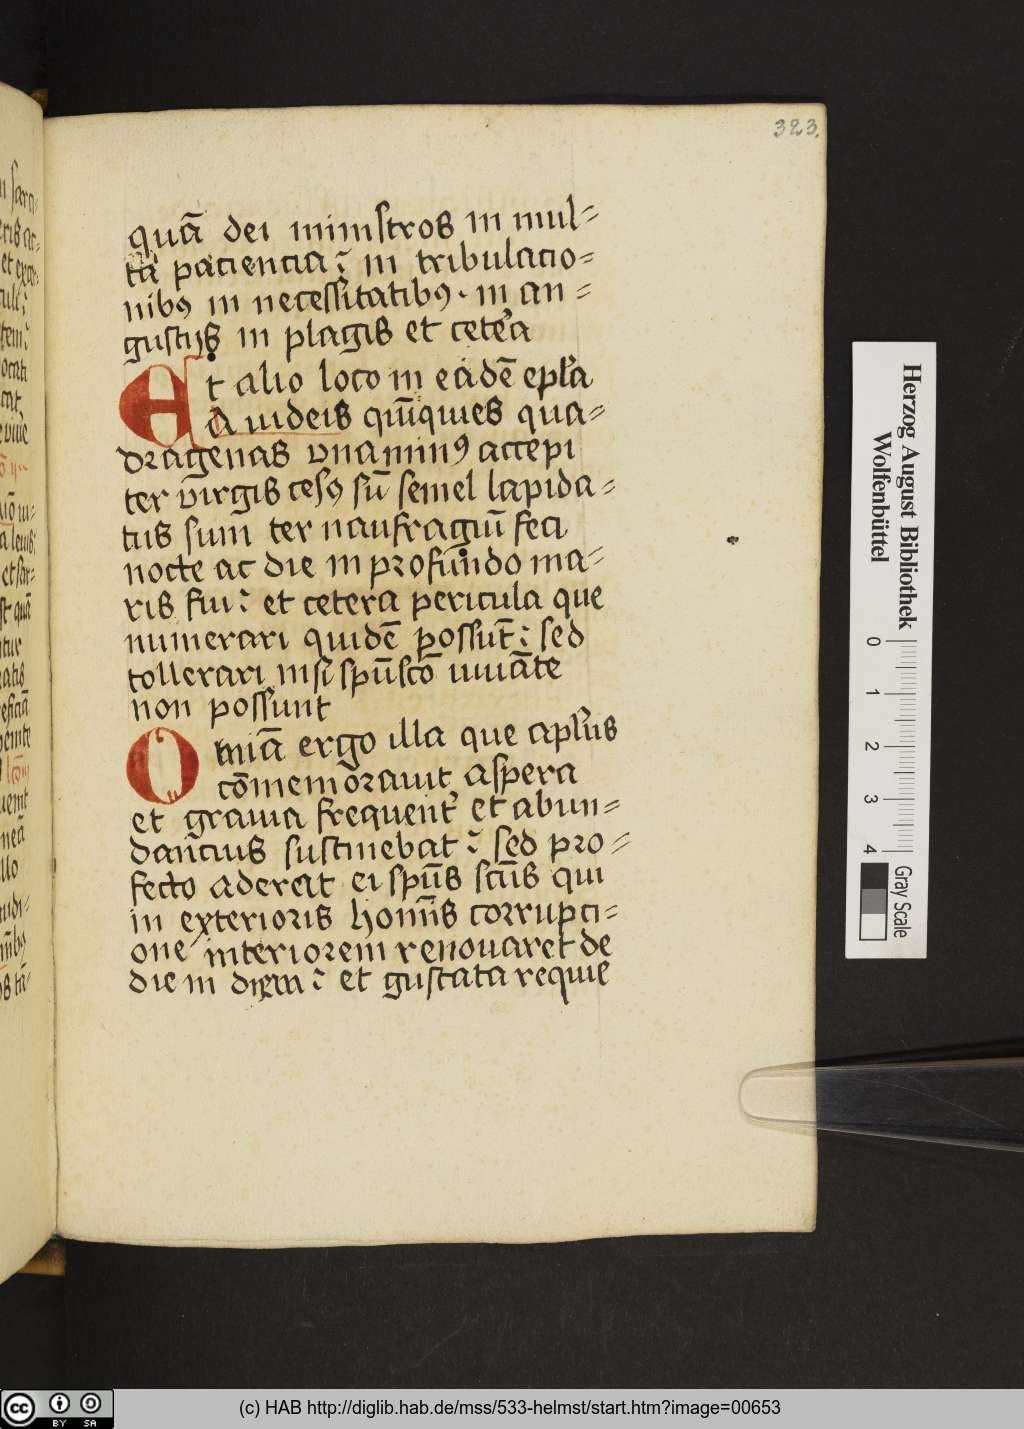 323.
quā dei ministros in mul=
ta paciencia: in tribulacio=
nibꝯ in necessitatibꝯ. in an=
gustijs in plagis et cete͛a
Et alio loco in eadē epl̄a
A iudeis quīquies qua=
dragenas vna minꝯ accepi
ter virgis cesꝯ sū semel lapida=
tus sum ter naufragiū feci
nocte ac die in profundo ma=
ris fui: et cetera pericula que
numerari quidē possūt: sed
tollerari nisi spūscō iuuāte
non possunt
Omīa ergo illa que apl̄us
cōmemorauit aspera
et grauia frequent͛ et abun=
dāncius sustinebat: sed pro=
fecto aderat ei spūs scūs qui
in exterioris homīs corrupci=
one interiorem renouaret de
die in diem: et gustata requie
Herzog August Bibliothek
Wolfenbüttel
0 1 2 3 4
Gray Scale
cc BY SA
(c) HAB http://diglib.hab.de/mss/533-helmst/start.htm?image=00653